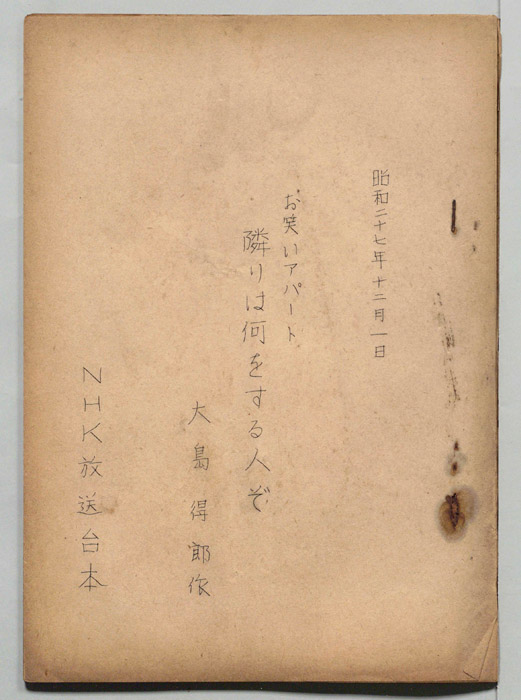 昭和二十七年十二月一日
お笑いアパート
隣りは何をする人ぞ
大島得郎作
NHK放送台本